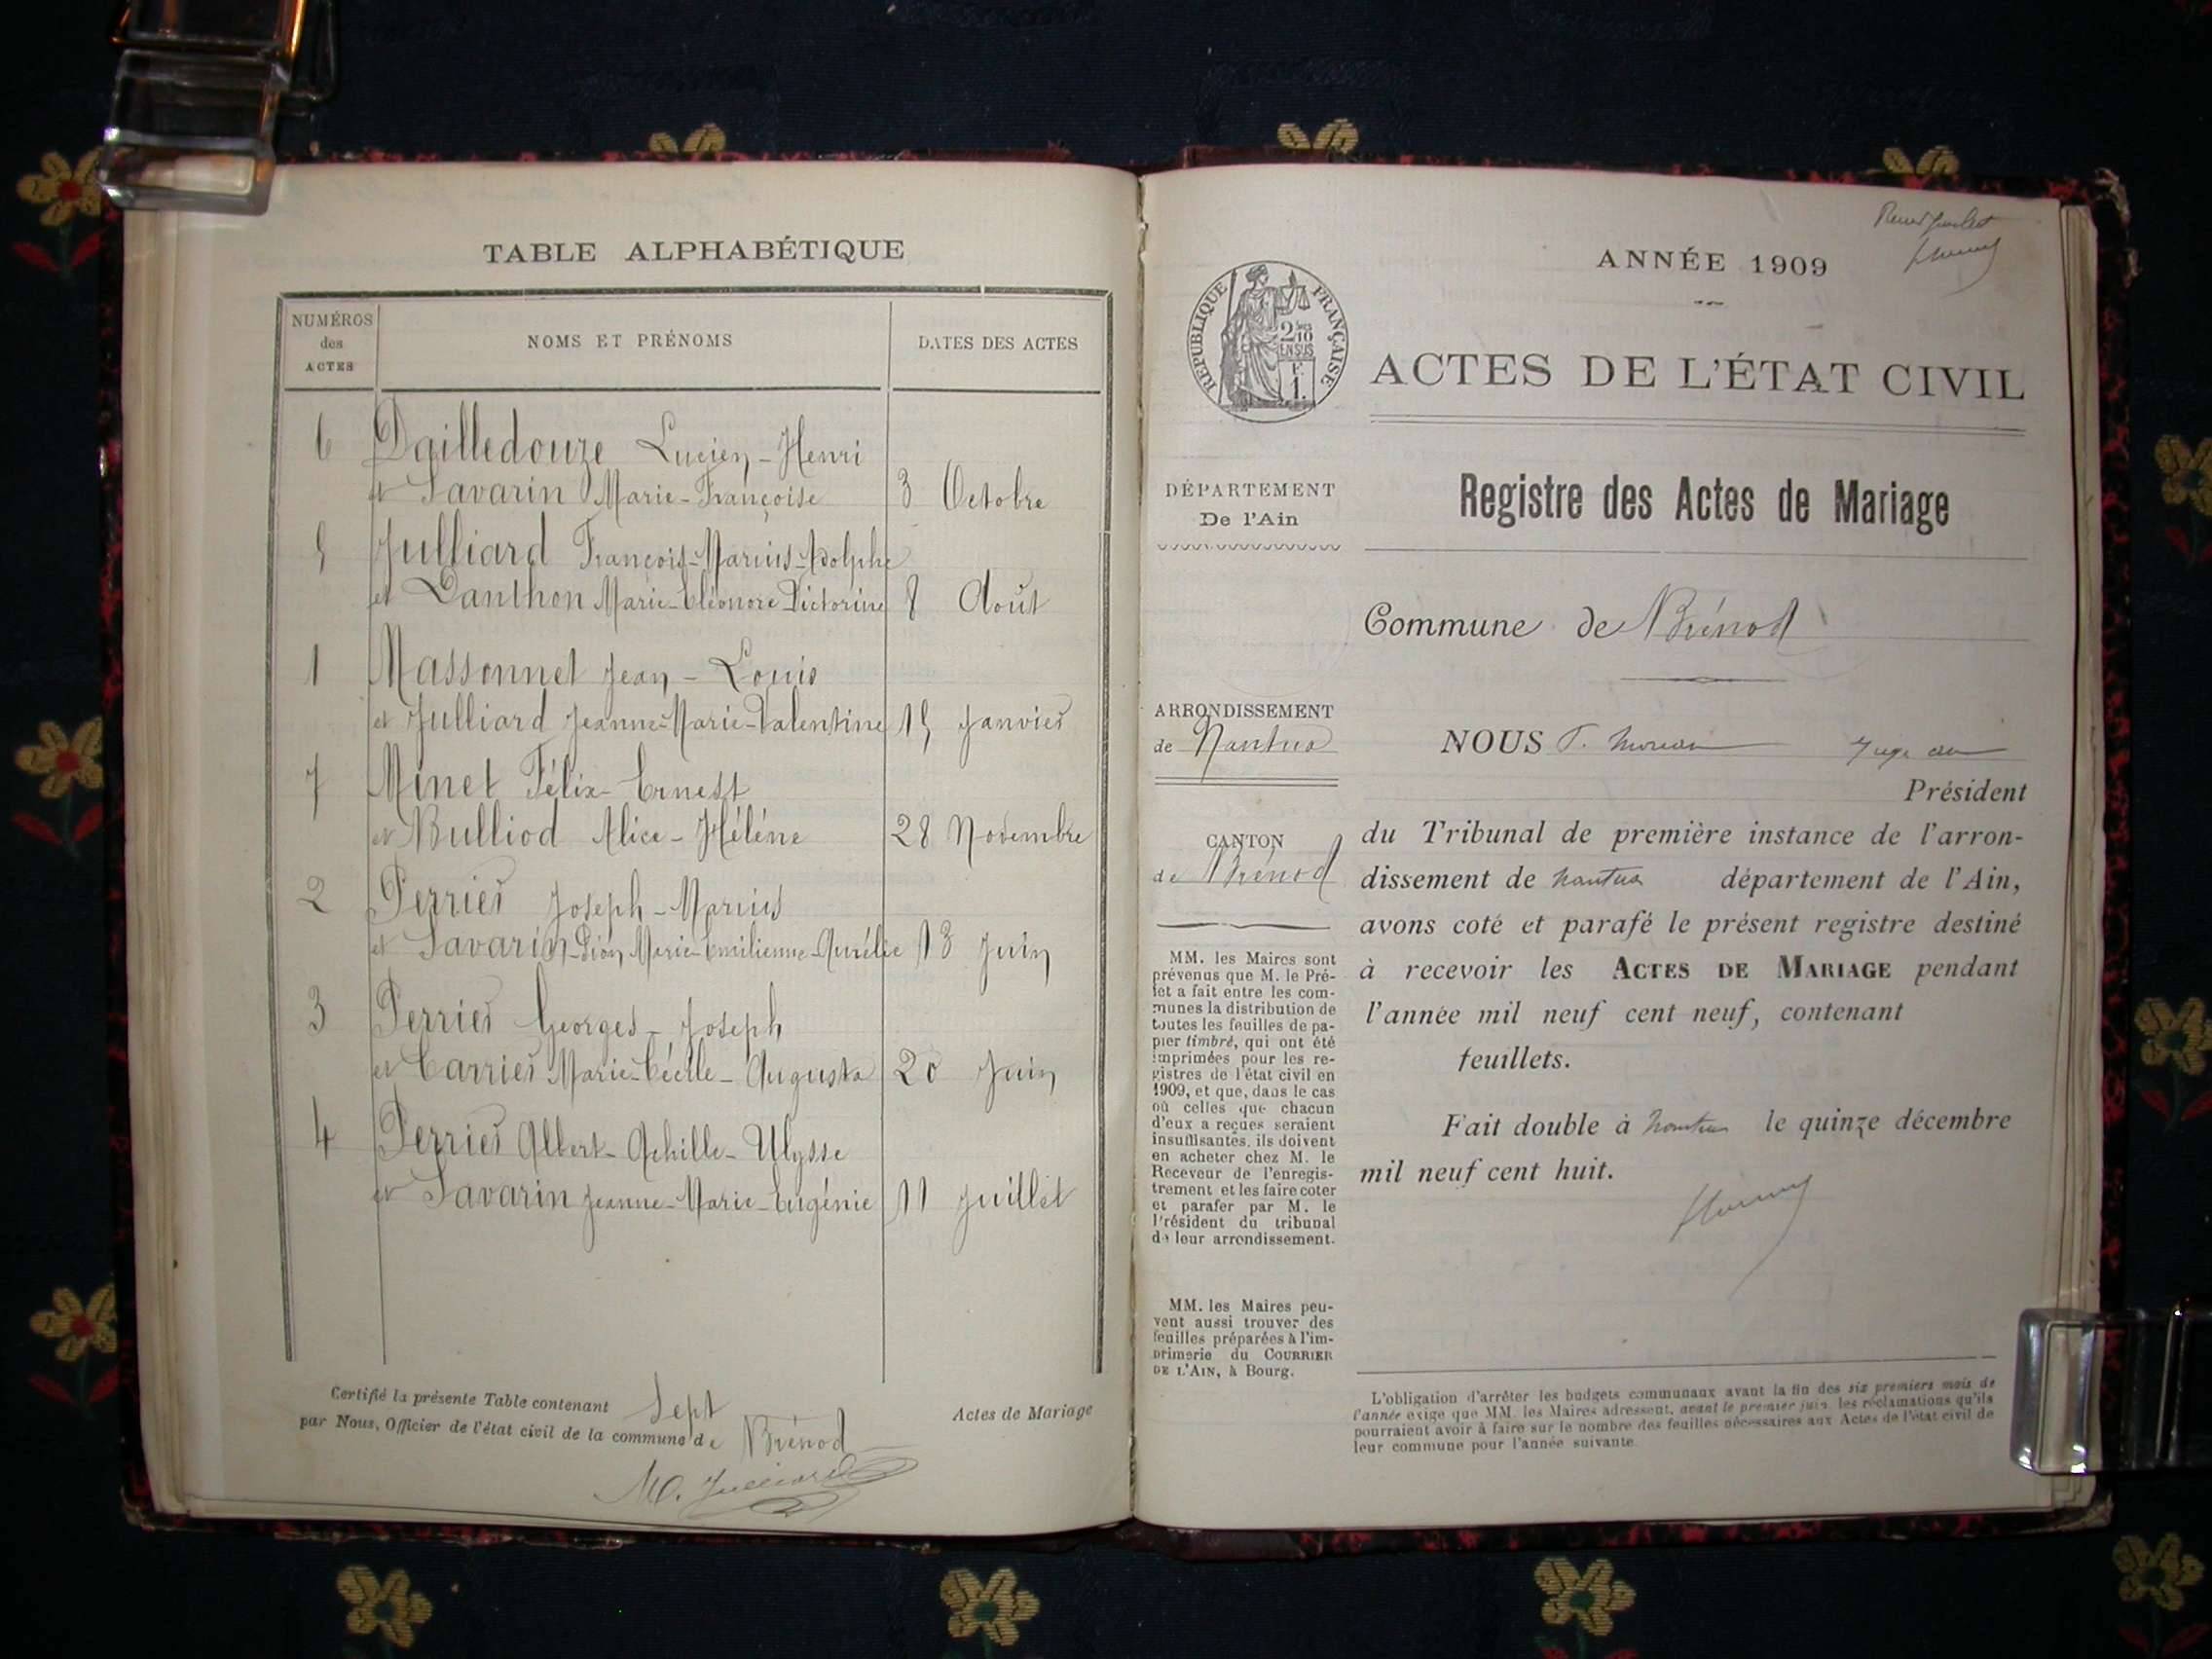 TABLE ALPHABÉTIQUE
NUMÉROS
des
ACTES
NOMS ET PRÉNOMS
DATES DES ACTES
6 Dailledouze Lucien-Henri
et Savarin Marie-Françoise 3 Octobre
5 Julliard François-Marius-Adolphe
et Danthon Marie-Eléonore-Victorine 8 Août
1 Massonnet Jean-Louis
et Julliard Jeanne-Marie-Valentine 15 Janvier
7 Minet Félix-Ernest
et Bulliod Alice-Hélène 28 Novembre
2 Perrier Joseph-Marius
et Savarin-Pion Marie-Emilienne-Aurélie 13 Juin
3 Perrier Georges-Joseph
et Carrier Marie-Cécile-Augusta 20 Juin
4 Perrier Albert-Achille-Ulysse
et Savarin Jeanne-Marie-Eugénie 11 Juillet
Certifié la présente Table contenant Sept Actes de Mariage
par Nous, Officier de l'état civil de la commune de Brénod
M. Julliard
ANNÉE 1909
RÉPUBLIQUE FRANÇAISE
2/10
EN SUS
1.
ACTES DE L'ÉTAT CIVIL
DÉPARTEMENT
De l'Ain
ARRONDISSEMENT
de Nantua
CANTON
de Brénod
MM. les Maires sont
prévenus que M. le Pré-
fet a fait entre les com-
munes la distribution de
toutes les feuilles de pa-
pier timbré, qui ont été
imprimées pour les re-
gistres de l'état civil en
1909, et que, dans le cas
où celles que chacun
d'eux a reçues seraient
insuffisantes, ils doivent
en acheter chez M. le
Receveur de l'enregis-
trement et les faire coter
et parafer par M. le
Président du tribunal
de leur arrondissement.
MM. les Maires peu-
vent aussi trouver des
feuilles préparées à l'im-
primerie du COURRIER
DE L'AIN, à Bourg.
Registre des Actes de Mariage
Commune de Brénod
NOUS Juge
Président
du Tribunal de première instance de l'arron-
dissement de Nantua département de l'Ain,
avons coté et parafé le présent registre destiné
à recevoir les ACTES DE MARIAGE pendant
l'année mil neuf cent neuf, contenant
feuillets.
Fait double à Nantua le quinze décembre
mil neuf cent huit.
L'obligation d'arrêter les budgets communaux avant la fin des six premiers mois de
l'année exige que MM. les Maires adressent, avant le premier juin, les réclamations qu'ils
pourraient avoir à faire sur le nombre des feuilles nécessaires aux Actes de l'état civil de
leur commune pour l'année suivante.